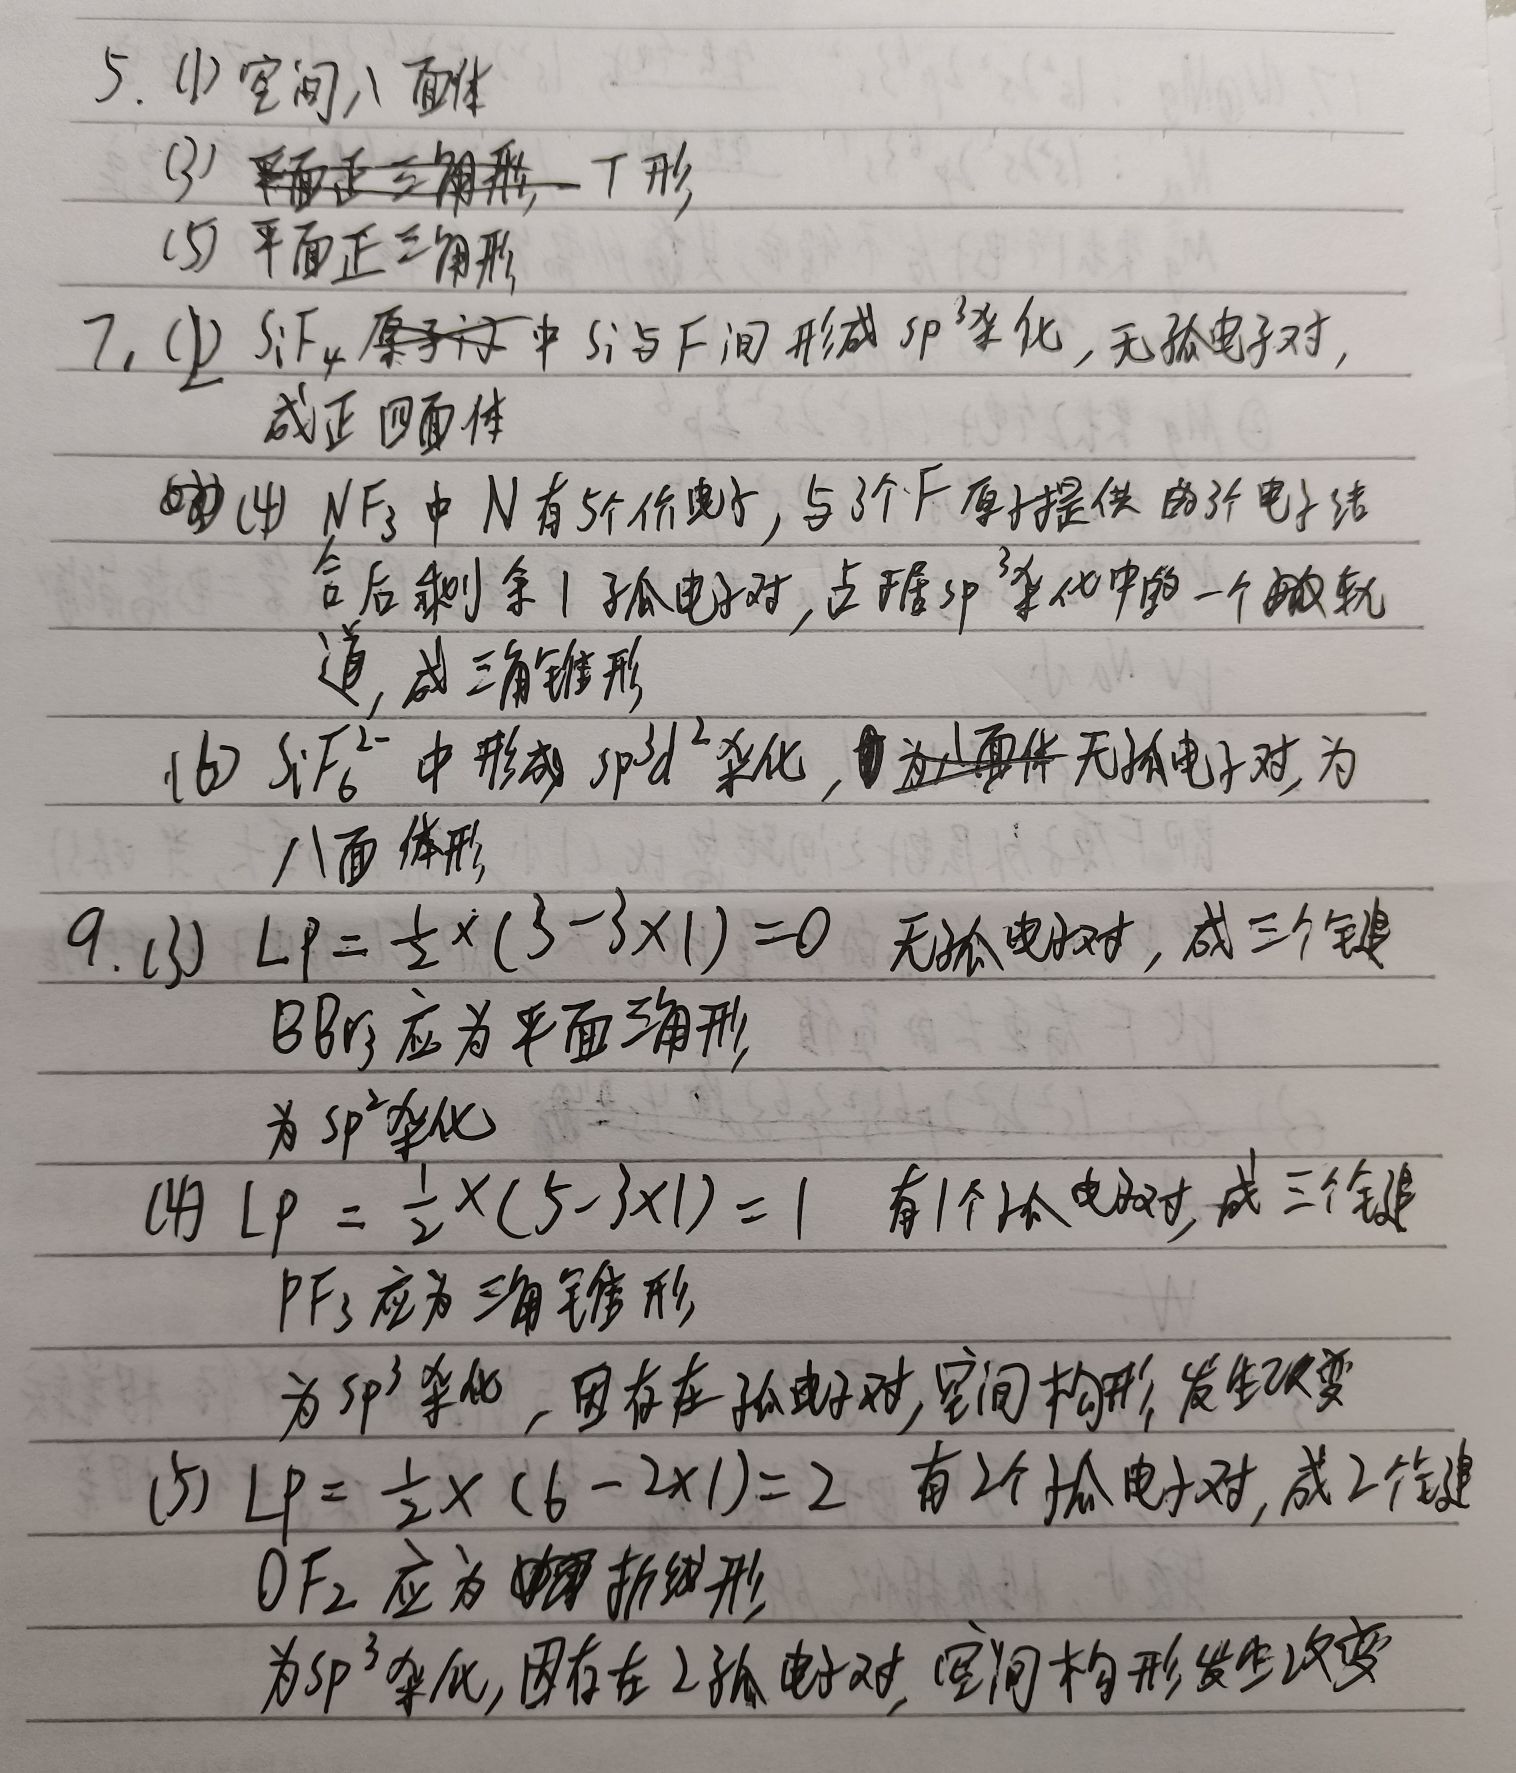 5. (1) 空间八面体
(3) 平面正三角形 T形
(5) 平面正三角形
7. (1) SiF₄ 原子 中 Si与F间形成 sp³杂化, 无孤电子对,
成正四面体
(4) NF₃中 N有5个价电子, 与3个F原子提供的3个电子结
合后剩余1孤电子对, 占据sp³杂化中的一个轨
道, 成三角锥形
(6) SiF₆²⁻ 中形成 sp³d²杂化, 为八面体 无孤电子对, 为
八面体形
9. (3) LP = ½×(3-3×1)=0 无孤电子对, 成三个键
BBr₃应为平面三角形
为sp²杂化
(4) LP = ½×(5-3×1)=1 有1个孤电子对, 成三个键
PF₃应为三角锥形
为sp³杂化, 因存在孤电子对, 空间构形发生改变
(5) LP = ½×(6-2×1)=2 有2个孤电子对, 成2个键
OF₂应为折线形
为sp³杂化, 因存在2孤电子对, 空间构形发生改变